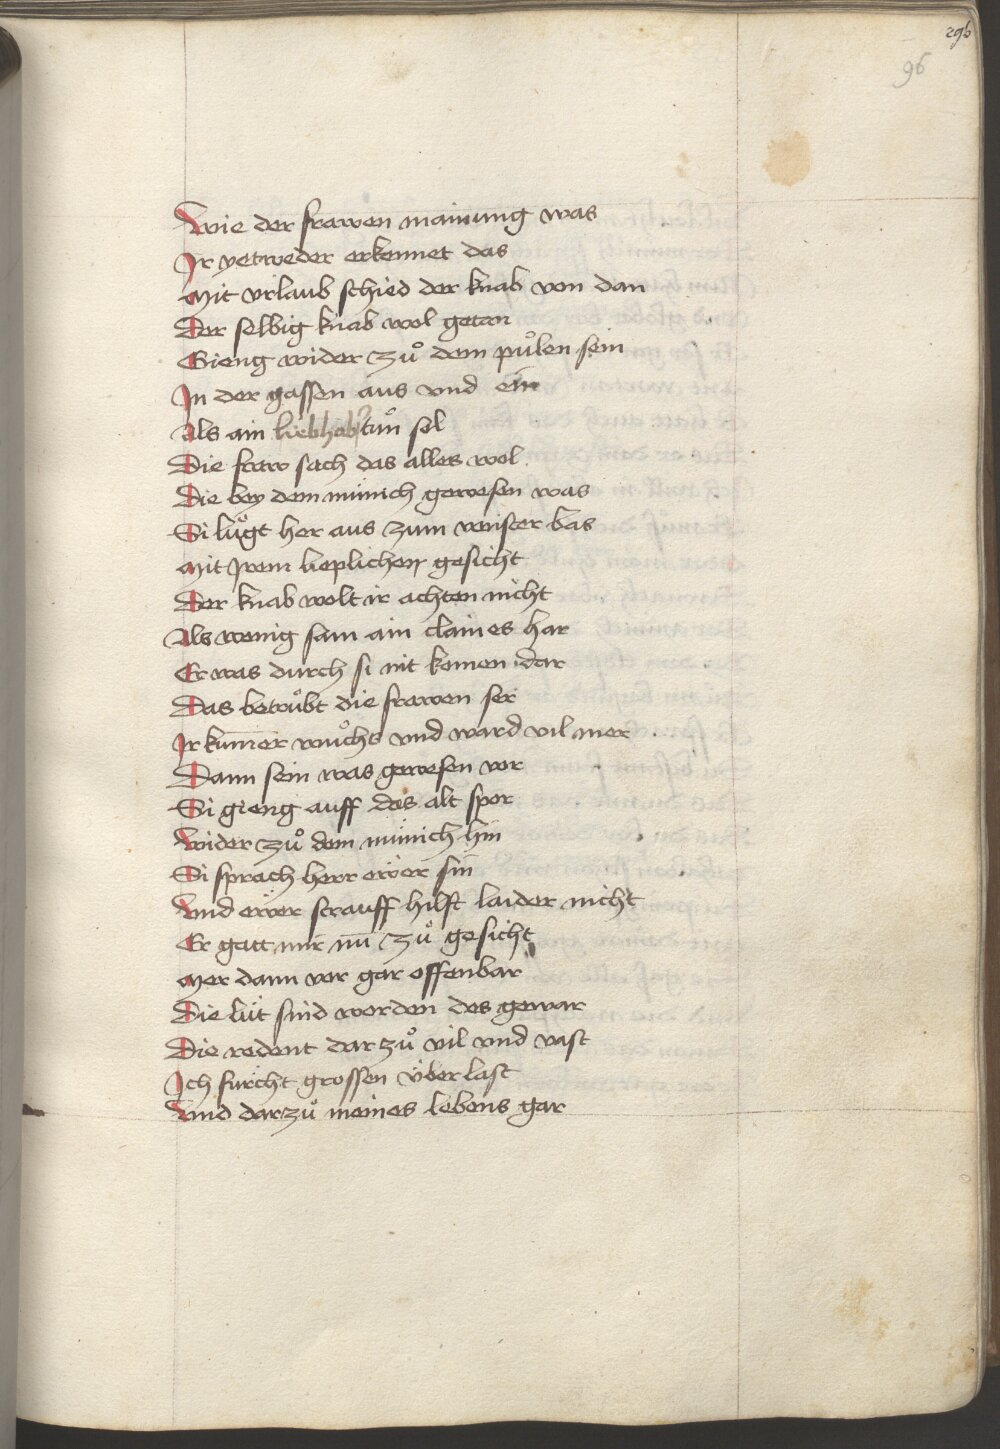 296
96
Wie der frawen mainung was
Ir yetweder erkennet das
Mit vrlaub schied der knab von dan
Der selbig knab wol getan
Gieng wider zuͦ dem puͦlen sein
In der gassen aus vnd ein
Als ain liebhab tuͦn sol
Die fraw sach das alles wol
Die bey dem münich gewesen was
Si luͦgt her aus zum venster bas
Mit Irem lieplichen gesicht
Der knab wolt ir achten nicht
Als wenig sam ain claines har
Er was durch si nit komen dar
Das betruͤbt die frawen ser
Ir kum̄er wuͦchs vnd ward vil mer
Dann sein was gewesen vor
Si gieng auff das alt spor
Wider zuͦ dem münich hin
Si sprach herr ewer sin
Vnd ewer strauff hilft laider nicht
Er gatt mir nu̅ zuͦ gesicht
Mer dann vor gar offenbar
Die lüt sind worden des gewar
Die redent dar zuͦ vil vnd vast
Ich fürcht grossen überlast
Vnd darzuͦ meines lebens gar